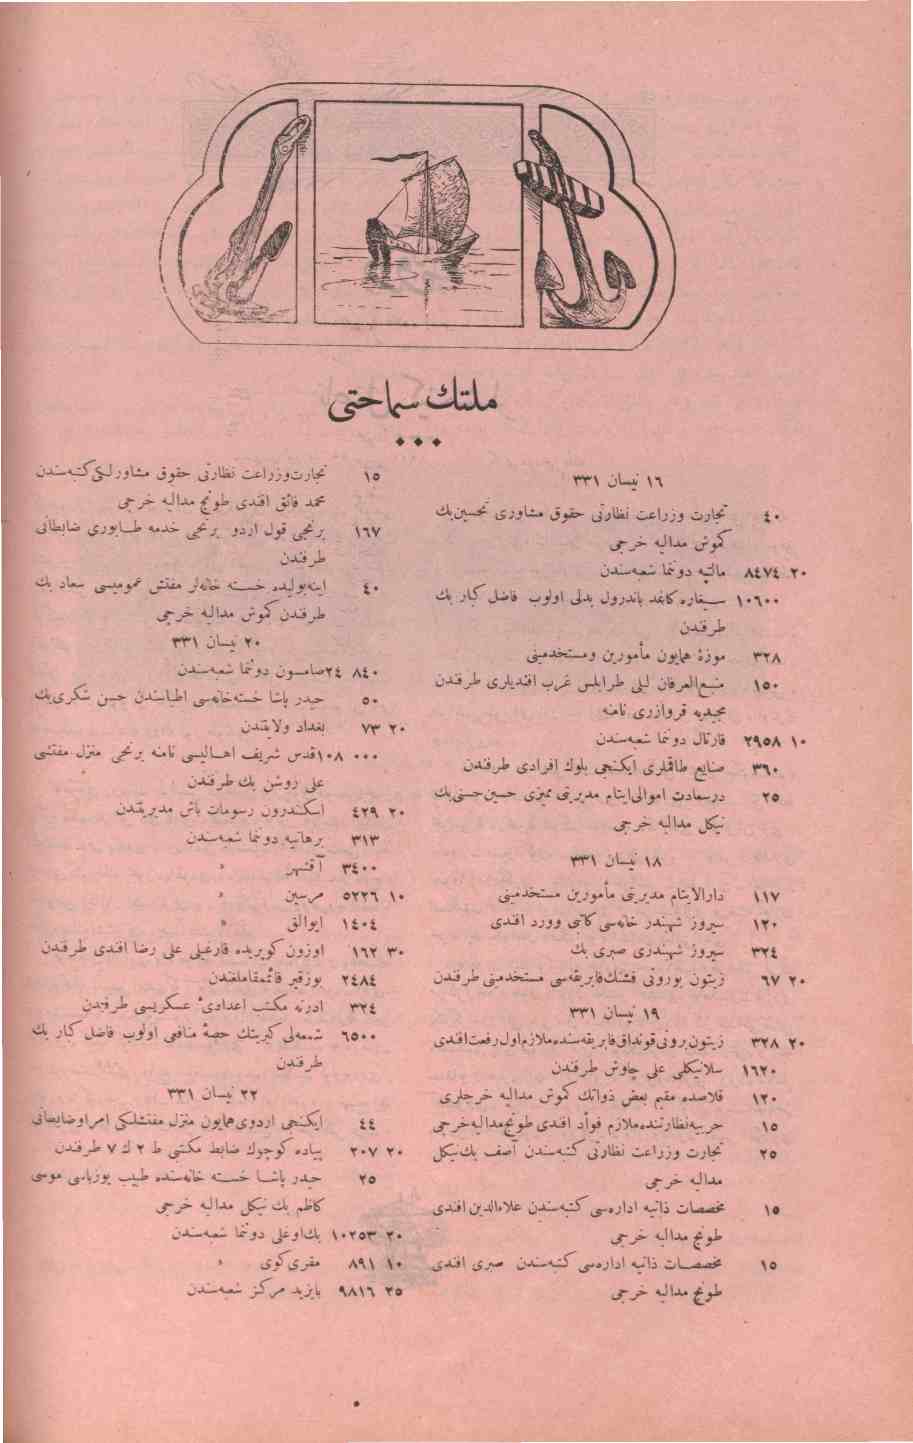 ملتك سماحتی
١٦ نیسان ٣٣١
٤٠ تجارت وزراعت نظارتی حقوق مشاوری تحسین بك
كموش مدالیه خرجی
٢٠ ٨٤٧٤ مالتپه دوننما شعبه‌سندن
١٠٦٠٠ سیغاره كاغد باندرول بدلی اولوب فاضل كبار بك
طرفندن
٣٢٨ موزهٔ همایون مأمورین ومستخدمینی
١٥٠ منبع‌العرفان لیلی طرابلس غرب افندیلری طرفندن
مجیدیه قروازری نامنه
١٠ ٢٩٥٨ قارتال دوننما شعبه‌سندن
٣٦٠ صنایع طاقملری ایكنجی بلوك افرادی طرفندن
٢٥ درسعادت اموال ایتام مدیریتی ممیزی حسین حسنی بك
نیكل مدالیه خرجی
١٨ نیسان ٣٣١
١١٧ دارالایتام مدیریتی مأمورین مستخدمینی
١٢٠ سیروز شهبندر خانه‌سی كاتبی وورد افندی
٣٢٤ سیروز شهبندری صبری بك
٢٠ ٦٧ زیتون بورونی فشنك فابریقه‌سی مستخدمنی طرفندن
١٩ نیسان ٣٣١
٢٠ ٣٢٨ زیتون برونی قونداق فابریقه‌سنده ملازم اول رفعت افندی
١٦٢٠ سلانیكلی علی چاوش طرفندن
١٢٠ قلاصده مقیم بعض ذواتك كموش مدالیه خرجلری
١٥ حربیه نظارتنده ملازم فوآد افندی طونج مدالیه خرجی
٢٥ تجارت وزراعت نظارتی كتبه‌سندن آصف بك نیكل
مدالیه خرجی
١٥ مخصصات ذاتیه اداره‌سی كتبه‌سندن علاءالدین افندی
طونج مدالیه خرجی
١٥ مخصصات ذاتیه اداره‌سی كتبه‌سندن صبری افندی
طونج مدالیه خرجی
١٥ تجارت وزراعت نظارتی حقوق مشاورلكی كتبه‌سندن
محمد فائق افندی طونج مدالیه خرجی
١٦٧ برنجی قول اردو برنجی خدمه طابوری ضابطانی
طرفندن
٤٠ اینه‌بولیده خسته خانه‌لر مفتش عمومیسی سعاد بك
طرفندن كموش مدالیه خرجی
٢٠ نیسان ٣٣١
٨٤٠ ٢٤ صامسون دوننما شعبه‌سندن
٥٠ حیدر پاشا خسته‌خانه‌سی اطباسندن حسن شكری بك
٢٠ ٧٣ بغداد ولایتندن
٠٠٠ ١٠٨ قدس شریف اهالیسی نامنه برنجی منزل مفتشی
علی روشن بك طرفندن
٢٠ ٤٢٩ اسكندرون رسومات باش مدیریتندن
٣١٣ برهانیه دوننما شعبه‌سندن
٣٤٠٠ آقشهر »
١٠ ٥٢٢٦ مرسین »
١٤٠٤ ایوالق »
٣٠ ١٦٢ اوزون كوپریده قارغیلی علی رضا افندی طرفندن
٢٤٨٤ بوزقیر قائمقاملغندن
٣٢٤ ادرنه مكتب اعدادیٔ عسكریسی طرفندن
٦٥٠٠ شعله‌لی كبریتك حصهٔ منافعی اولوب فاضل كبار بك
طرفندن
٢٢ نیسان ٣٣١
٤٤ ایكنجی اردوی همایون منزل مفتشلكی امرا وضابطانی
٢٠ ٢٠٧ پیاده كوچوك ضابط مكتبی ط ٢ ك ٧ طرفندن
٢٥ حیدر پاشا خسته خانه‌سنده طبیب یوزباشی موسی
كاظم بك نیكل مدالیه خرجی
٢٠ ١٠٢٥٣ بك‌اوغلی دوننما شعبه‌سندن
١٠ ٨٩١ مقری كوی »
٢٥ ٩٨١٦ بایزید مركز شعبه‌سندن